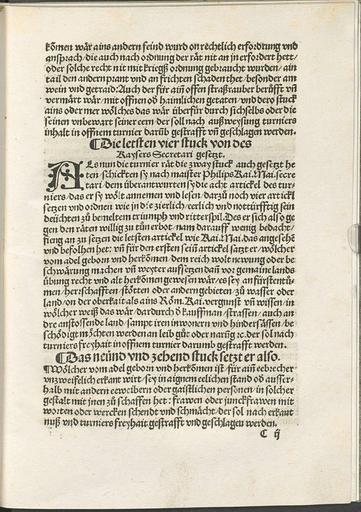 kömen wår ains andern feind wurd on rechtlich erfordrung vnd
ansprach / die auch nach ordnung der råt nit an jn erfordert hett /
oder solche recht nit mit kriegß ordnung gebraucht wurden / ain
tail den andern prant vnd an früchten schaden thet / besonder am
wein vnd getraid: Auch der für ain offen straßrauber berüfft vñ
vermårt wår / mit offnen oð haimlichen getaten / vnd dero stuck
ains oder mer wölches das wår überfür durch sich selbs oder die
seinen vnbewart seiner eern der soll nach außweysung turniers
inhalt in offnem turnier darüb gestrafft vñ geschlagen werden.
¶ Die letsten vier stuck von des
Kaysers Secretari gesetzt.
Als nun die turnier råt die zway stuck auch gesetzt he
ten / schickten sy nach maister Philips Kai. Mai. secre
tari / dem überantwurten sy die acht artickel des tur-
niers / das er sy wölte annemen vnd lesen / darzů noch vier artickl
setzen vnd ordnen / wie jn die zierlich / eerlich vnd notturfftig sein
deüchten zů beneltem triumph vnd ritterspil. Des er sich also ge
gen den råten willig zů tůn erbot / nam darauff wenig bedacht /
fieng an zů setzen die letsten artickel wie Kai. Mai. das angesehẽ
vnd befolhen het: vñ für den ersten seiñ artickel satzt er / wölcher
vom adel geborn vnd herkömen / dem reich wolt newung oder be
schwårung machen vñ weyter auffsetzen dañ vor gemaine lands
übung recht vnd alt herkömen gewesen wår / es sey an fürstentů-
men / herschafften / stötten oder andern gebieten / zů wasser oder
land / on der oberkait als ains Röm. Kai. vergunst vñ wissen / in
wölcher weiß das wår / dardurch ð kauffman / strassen / auch an
dre anstossende land / sampt iren inwonern vnd hindersåssen / be
schödigt möchten werden an leib gůt oder narũg zc. der sol nach
turniers freyhait in offnem turnier darumb gestrafft werden.
¶ Das neünd vnd zehend stuck setzt er also.
¶ Wölcher vom adel geborn vnd herkömen ist / für ain eebrecher
vnzweifelich erkant wirt / sey in aignem eelichen stand oð ausser-
halb mit andern eeweibern oder gaistlichen personen / in solcher
gestalt mit jnen zů schaffen het: frawen oder junckfrawen mit
worten oder wercken schendt vnd schmåcht / der sol nach erkant
nuß vnd turniers freyhait gestrafft vnd geschlagen werden.
C ij